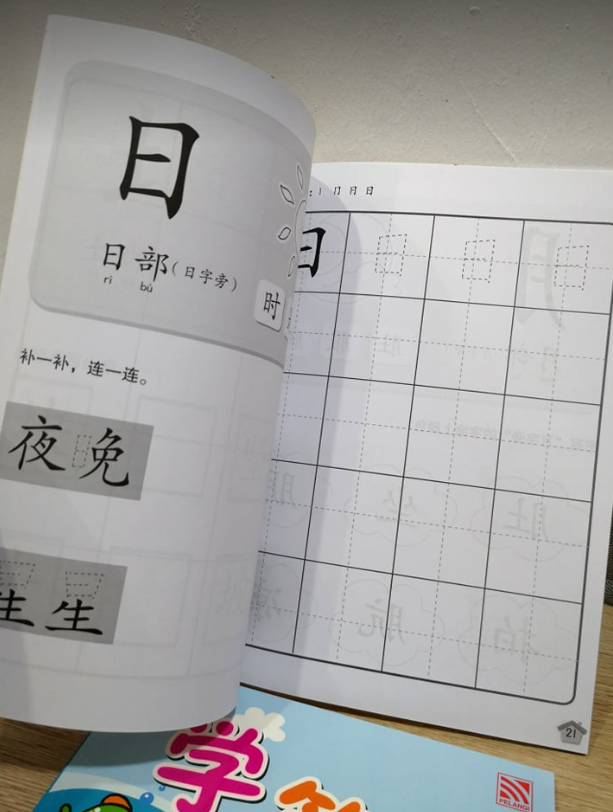 日
日部(日字旁)
rì bù
时
补一补，连一连。
夜免
生生
丨 冂 日 日
日
21
学
PELANGI